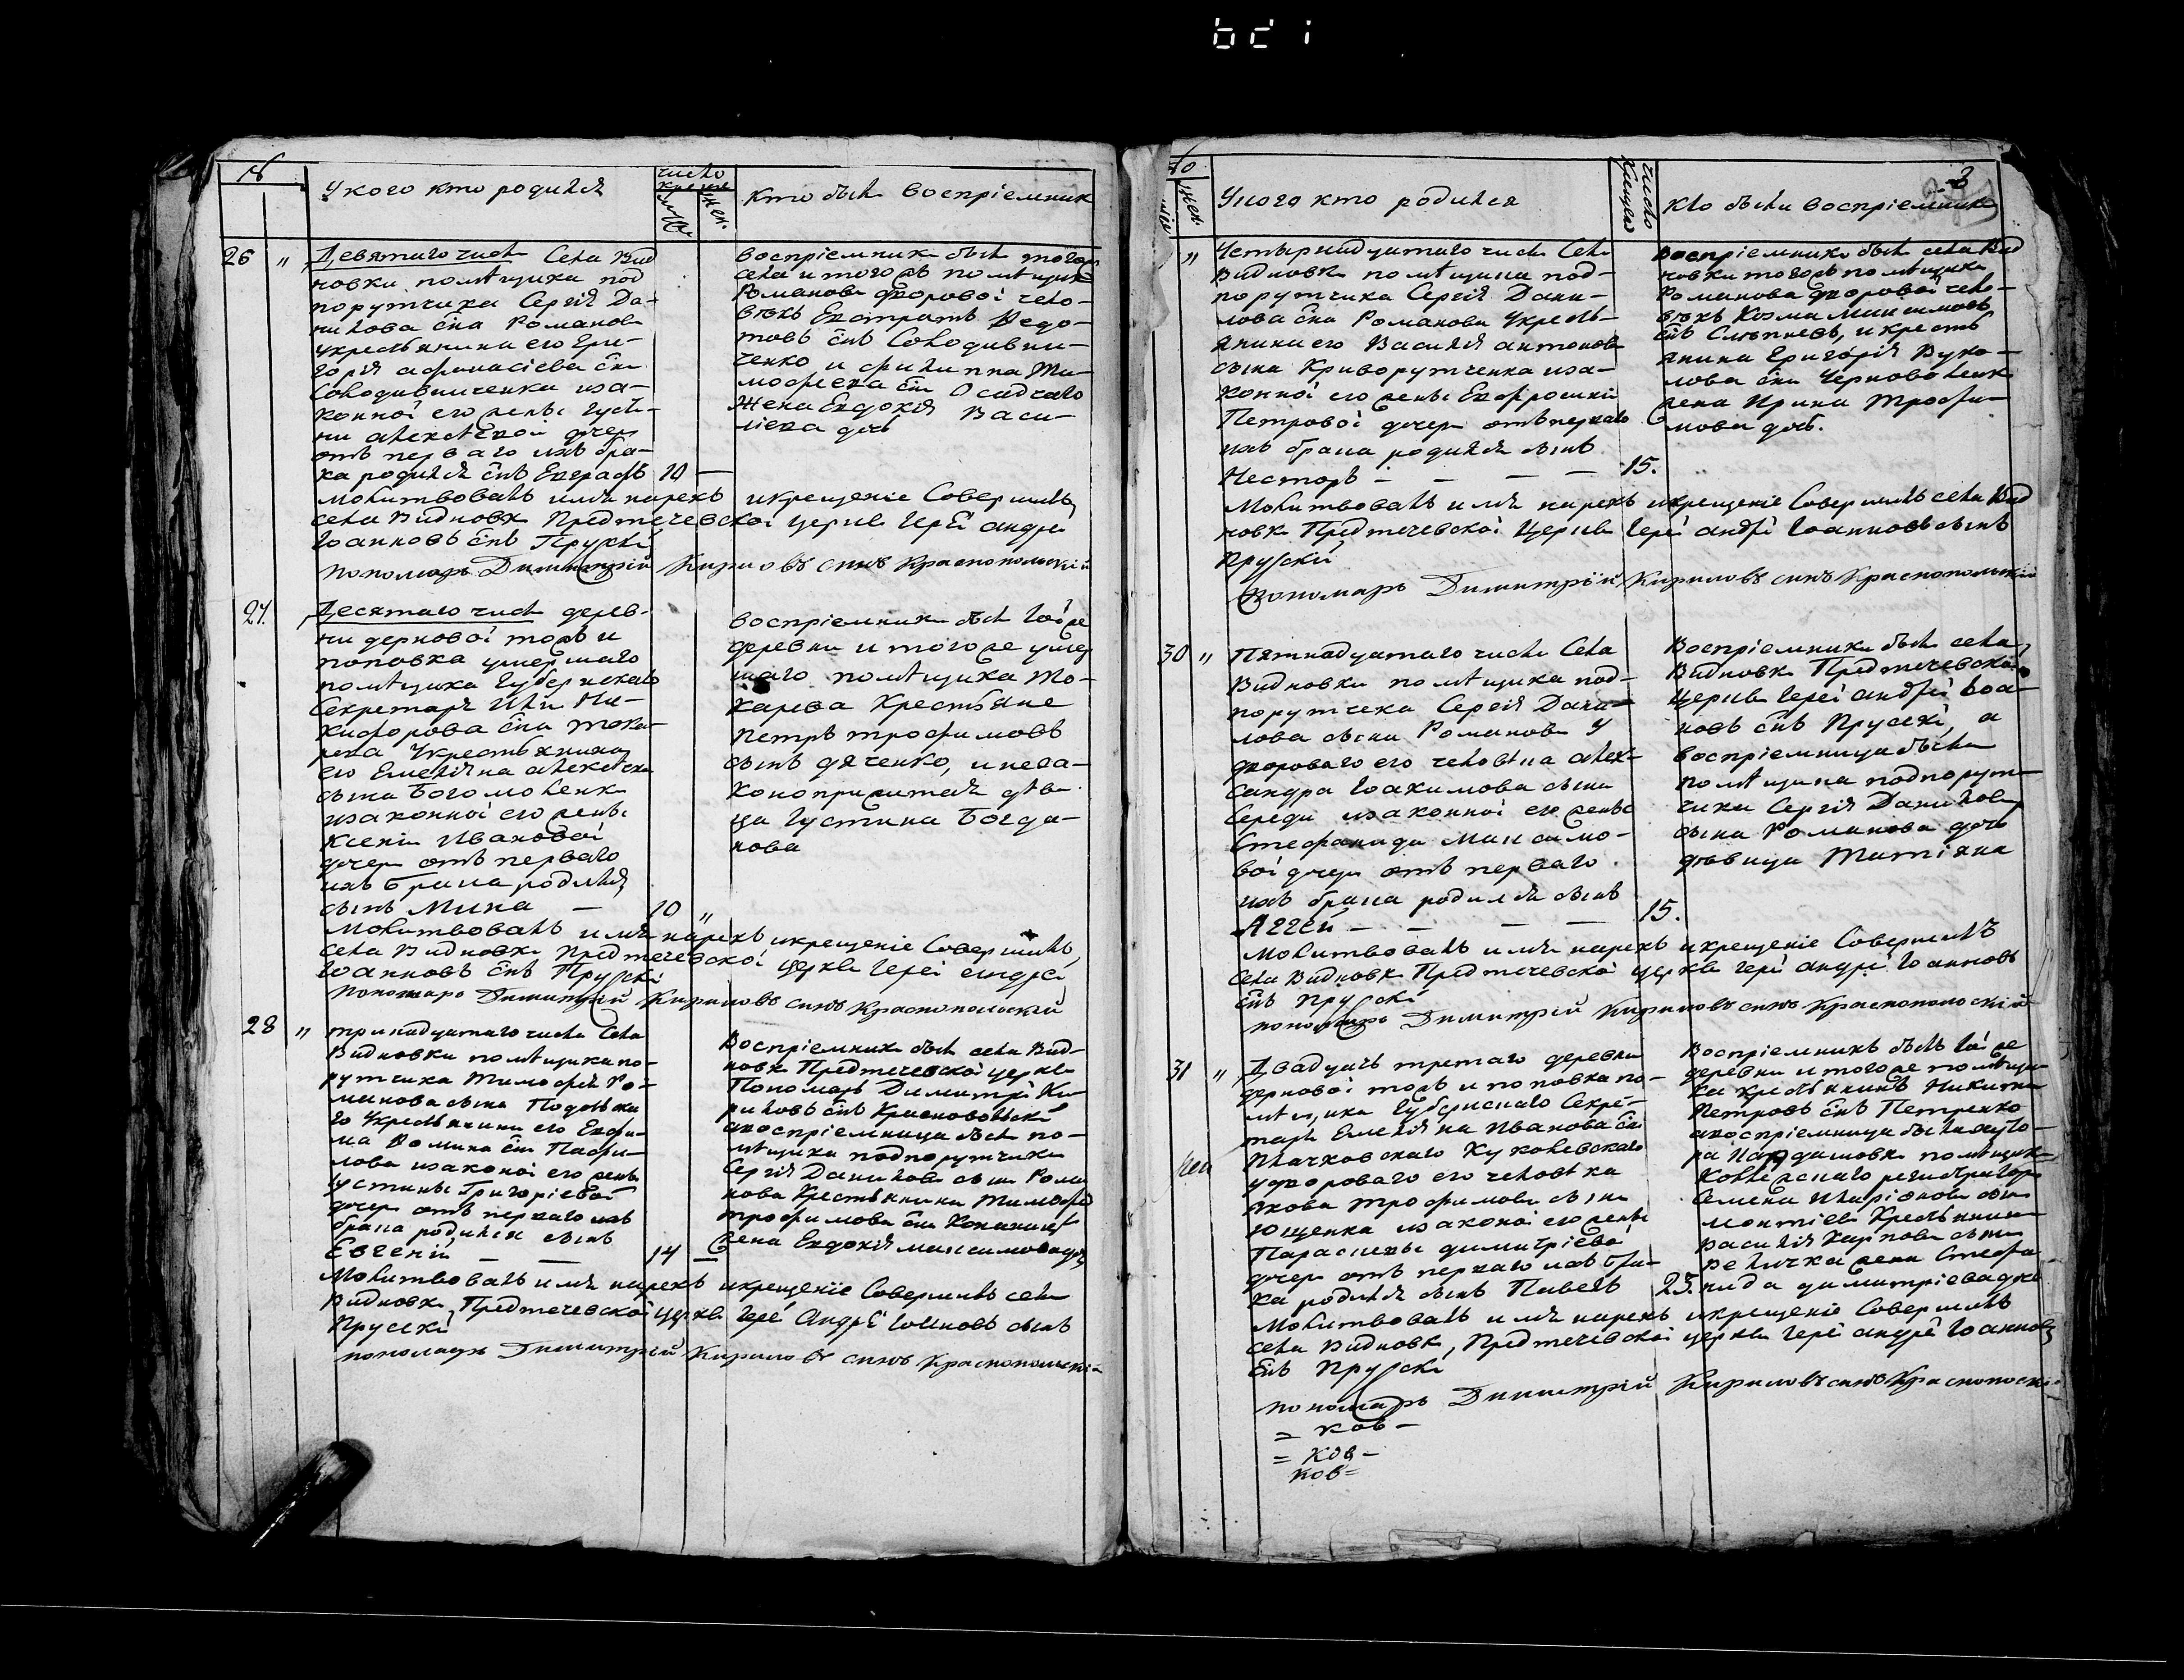 У кого кто родился
число
Кто былъ воспріемникъ
26 "
Девятаго числа Села Вид
новки помѣщика под
порутчика Сергія Да-
нилова сна Романова
укрестьянина его Гри-
горія афанасіева сна
иза-
конной его жены Густи-
ни алексѣевой дочери
отъ перваго ихъ бра-
ка родился снъ Евграфъ 10 —
воспріемникъ былъ тогожъ
села и тогожъ помѣщика
Романова дворовой чело-
вѣкъ Евстратъ Ведо-
товъ снъ
ченко и филиппа Ти-
мофеева сна Осадчаго
жена Евдокія Васи-
ліева дочь
молитвовалъ имя нарекъ икрещеніе Совершилъ
села Видновки Предтечевской церкви Іерей андрей
Іоанновъ снъ Прускій
пономарь Димитрій Кириловъ синъ Краснопольскій
27.
Десятаго числа дерев-
ни дерновой тожъ и
поповка умершаго
помѣщика Губернскаго
Секретаря Ильи Ни-
кифорова сна Тока-
рева укрестьянина
его Емеліяна алексѣева
сына Богомоленка
изаконной его жены
Ксеніи Ивановой
дочери отъ перваго
ихъ брака родился
сынъ Мина — 10 "
воспріемникъ былъ тойже
деревни и тогоже умер
шаго помѣщика То-
карева Крестьяне
Петръ трофимовъ
сынъ дяченко, и неза-
коноприжитая дѣви-
ца Густина Богда-
нова
молитвовалъ имя нарекъ икрещеніе Совершилъ
села Видновки Предтечевской церкви Іерей андрей
Іоанновъ снъ Прускій
пономарь Димитрій Кириловъ синъ Краснопольскій
28 "
тринадцатаго числа Села
Видновки помѣщика по-
рутчика Тимофея Ро-
манова сына
го укрестьянина его Евфи-
ма Фомина сна Панфи-
лова изаконой его жены
устины Григоріевой
дочери отъ перваго ихъ
брака родился сынъ
Евгеній — — 14 —
Воспріемникъ былъ села Вид-
новки Предтечевской церкви
Пономарь Димитрій Ки-
риловъ снъ Краснопольскій
авоспріемница была по-
мѣщика подпорутчика
Сергія Данилова сына Рома
нова Крестьянина Тимофея
трофимова сна
жена Евдокія максимова дочь
Молитвовалъ имя нарекъ икрещеніе Совершилъ села
Видновки, Предтечевской церкви Іерей Андрей Іоановъ сынъ
Прускій
пономарь Димитрій Кириловъ синъ Краснопольскій
У кого кто родился
число
Кто былъ воспріемникъ
"
Четырнадцатаго числа Села
Видновки помѣщика под-
порутчика Сергія Дани-
лова сна Романова укресть-
янина его Василія антонова
сына Криворутченка иза-
конной его жены Евфросиніи
Петровой дочери отъ перваго
ихъ брака родился сынъ
Несторъ — — — — 15.
Воспріемникъ былъ села Вид
новки тогожъ помѣщика
Романова дворовой чело-
вѣкъ Козма Максимовъ
снъ Слѣпневъ, и кресть
янина Григорія Вуко-
лова сна Черноволенк
жена Ирина Трофи-
мова дочь.
Молитвовалъ имя нарекъ икрещеніе Совершилъ села Вид
новки Предтечевской Церкви Іерей андрей Іоанновъ сынъ
Прускій
пономарь Димитрій Кириловъ синъ Краснопольскій
30 "
Пятнадцатаго числа Села
Видновки помѣщика под-
порутчика Сергія Дани-
лова сына Романова у
двороваго его человѣка алек-
сандра Іоакимова сына
Середи изаконной его жены
Стефаниды Максимо-
вой дочери отъ перваго
ихъ брака родился сынъ
Аггей — — — — 15.
Воспріемникъ былъ села
Видновки Предтечевской
Церкви Іерей андрей Іоа-
новъ снъ Прускій, а
воспріемница была
помѣщика подпорут-
чика Сергія Данилова
сына Романова дочь
дѣвица Татіяна
Молитвовалъ имя нарекъ икрещеніе Совершилъ
села Видновки Предтечевской церкви Іерей андрей Іоанновъ
снъ Прускій
пономарь Димитрій Кириловъ синъ Краснопольскій
31 "
Двадцать третаго деревни
дерновой тожъ и поповка по-
мѣщика Губернскаго Секре-
таря Емеліяна Иванова сна
Плачковскаго Жуковскаго
удвороваго его человѣка
Якова Трофимова сына
Ющенка изаконой его жены
Параскевы димитріевой
дочери отъ перваго ихъ бра-
ка родился сынъ Павелъ 23.
Воспріемникъ былъ тойже
деревни и тогоже помѣщи-
ка крестьянинъ Никита
Петровъ снъ Петренко
авоспріемница была хуто-
ра помѣщика
регистратора
Семена Иларіонова сына
крестьянина
Василія Карпова сына
Велички жена Стефа
нида димитріева дочь
Молитвовалъ имя нарекъ икрещеніе Совершилъ
села Видновки, Предтечевской церкви Іерей андрей Іоанновъ
снъ Прускій
пономарь Димитрій Кириловъ синъ Краснопольскій
= ков —
= ков —
ков =